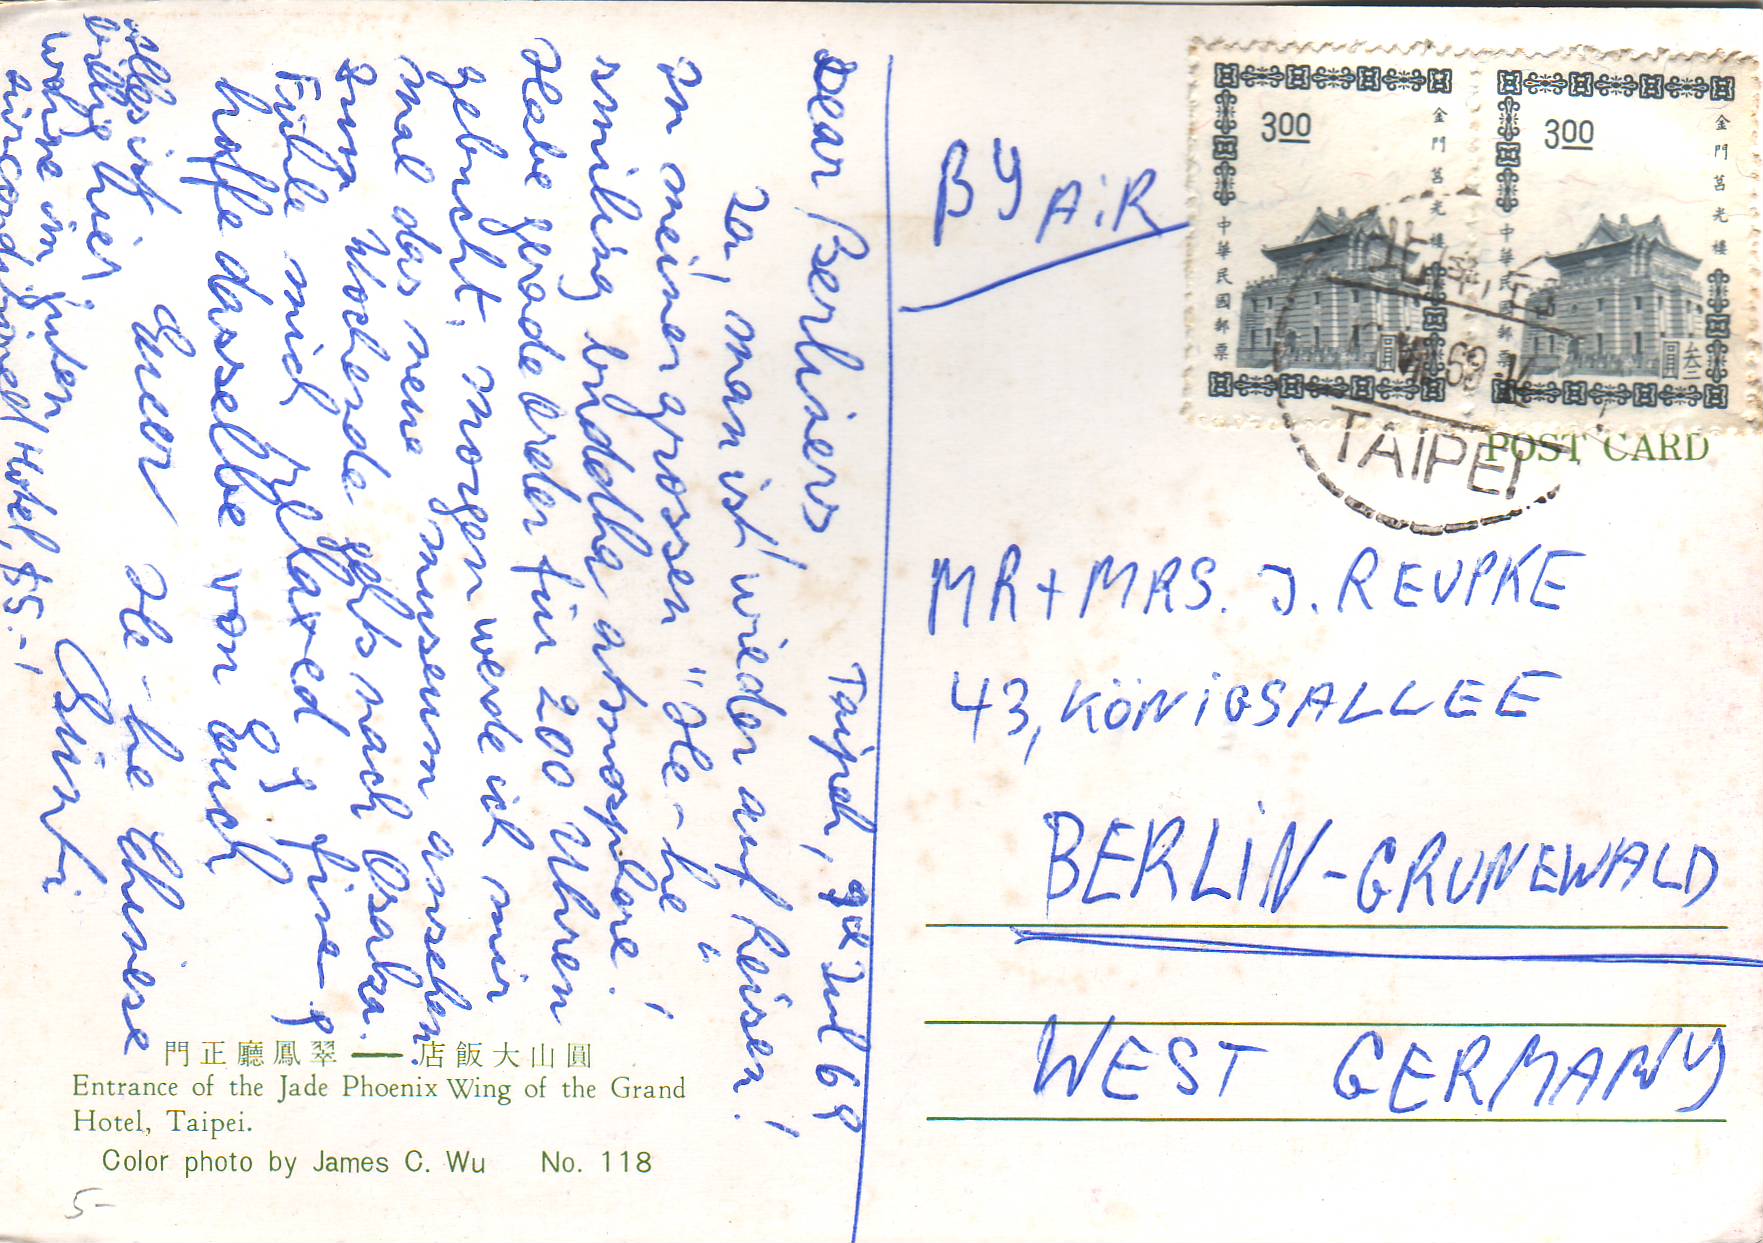 Taipeh, 9d Jul 69
Dear Berliners
Ja, man ist wieder auf Reisen!
In meiner grossen "He-he
smiling buddha atmosphere!
Habe grade Order für 200 Uhren
gebucht, morgen werde ich mir
mal das neue museum ansehen.
Zum Wochende gehts nach Osaka.
Fühle mich relaxed & fine &
hoffe dasselbe von Euch
Euer He-he Chinese
Alles ist
billig hier
wohne im guten
airconditioned Hotel, $5.-!
BY AIR
300
金門莒光樓
中華民國郵票
圓叁
300
金門莒光樓
中華民國郵票
圓叁
69
TAIPEI
POST CARD
MR + MRS. J. REUPKE
43, KÖNIGSALLEE
BERLIN-GRUNEWALD
WEST GERMANY
門正廳鳳翠 — 店飯大山圓
Entrance of the Jade Phoenix Wing of the Grand
Hotel, Taipei.
Color photo by James C. Wu No. 118
5-